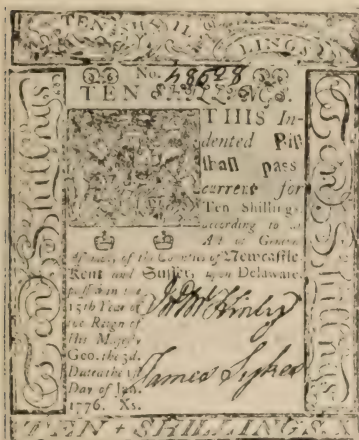 TEN SHILLINGS
No. 48628
TEN SHILLINGS.
THIS In-
dented Bill
shall pass
current for
Ten Shillings
according to
Act of General
of the Counties of Newcastle
Kent and Sussex, upon Delaware,
passed in the
15th Year of
the Reign of
His Majesty
Geo. the 3d.
Dated the 1st
Day of Jan.
1776. Xs.
Jno McKinly
James Sykes
Ten Shillings
Ten Shillings
TEN SHILLINGS X